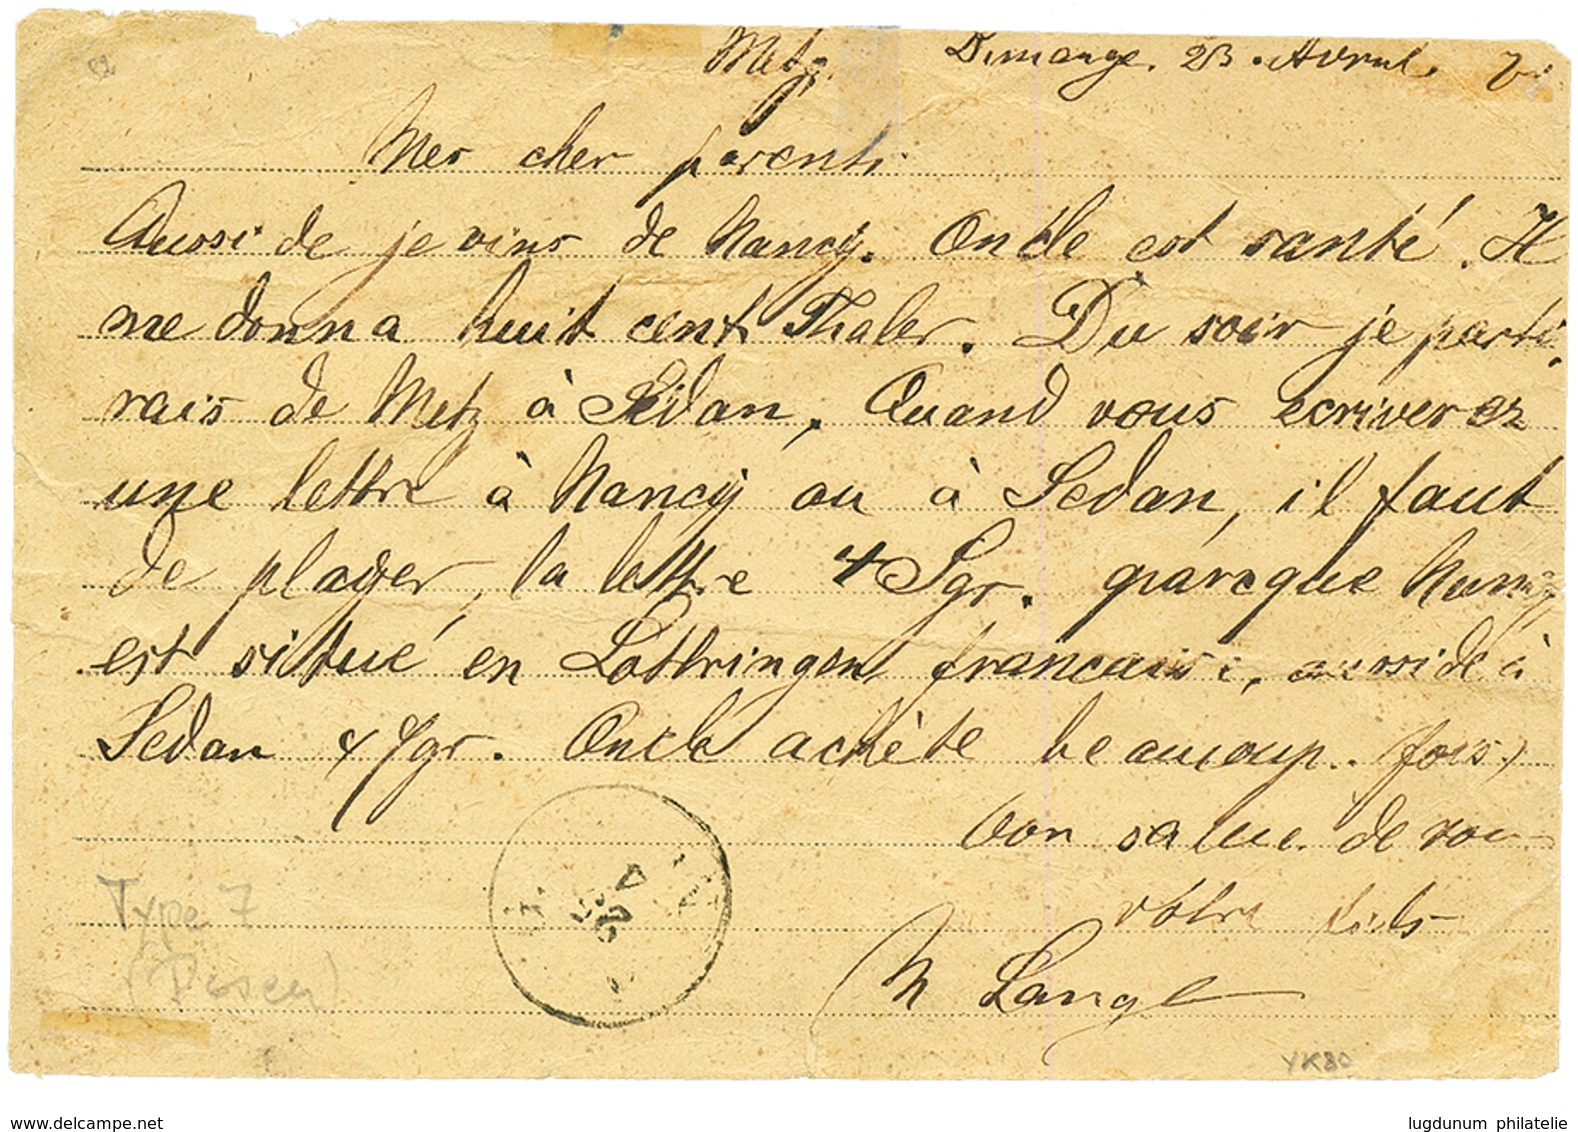 Metz, Dimange. 23. Avrul. 71
Mes cher parents.
Aussi de je vins de Nancy. Oncle est santé. Il
me donna huit cent Thaler. Du soir je parti-
rais de Metz à Sedan. Quand vous ecriverez
une lettre à Nancy ou à Sedan, il faut
de player, la lettre 4 Sgr. parcque Nancy
est situé en Lothringen francaise, aussi de à
Sedan 4 Sgr. Oncle achète beaucoup. (fois)
bon salue de vou
vôtre fils
N Lange
Type 7
(Discu)
YK80
www.delcampe.net
lugdunum philatelie